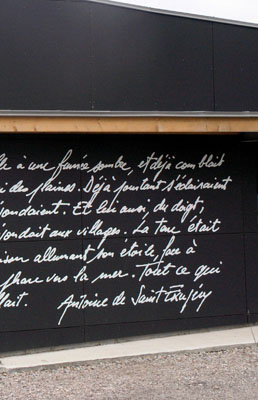 le à une fumée sombre, et déjà comblait
des plaines. Déjà pourtant s'éclairaient
pondaient. Et lui aussi, du doigt,
pondait aux villages. La terre était
aison allumant son étoile, face à
phare vers la mer. Tout ce qui
llait. Antoine de Saint Exupéry